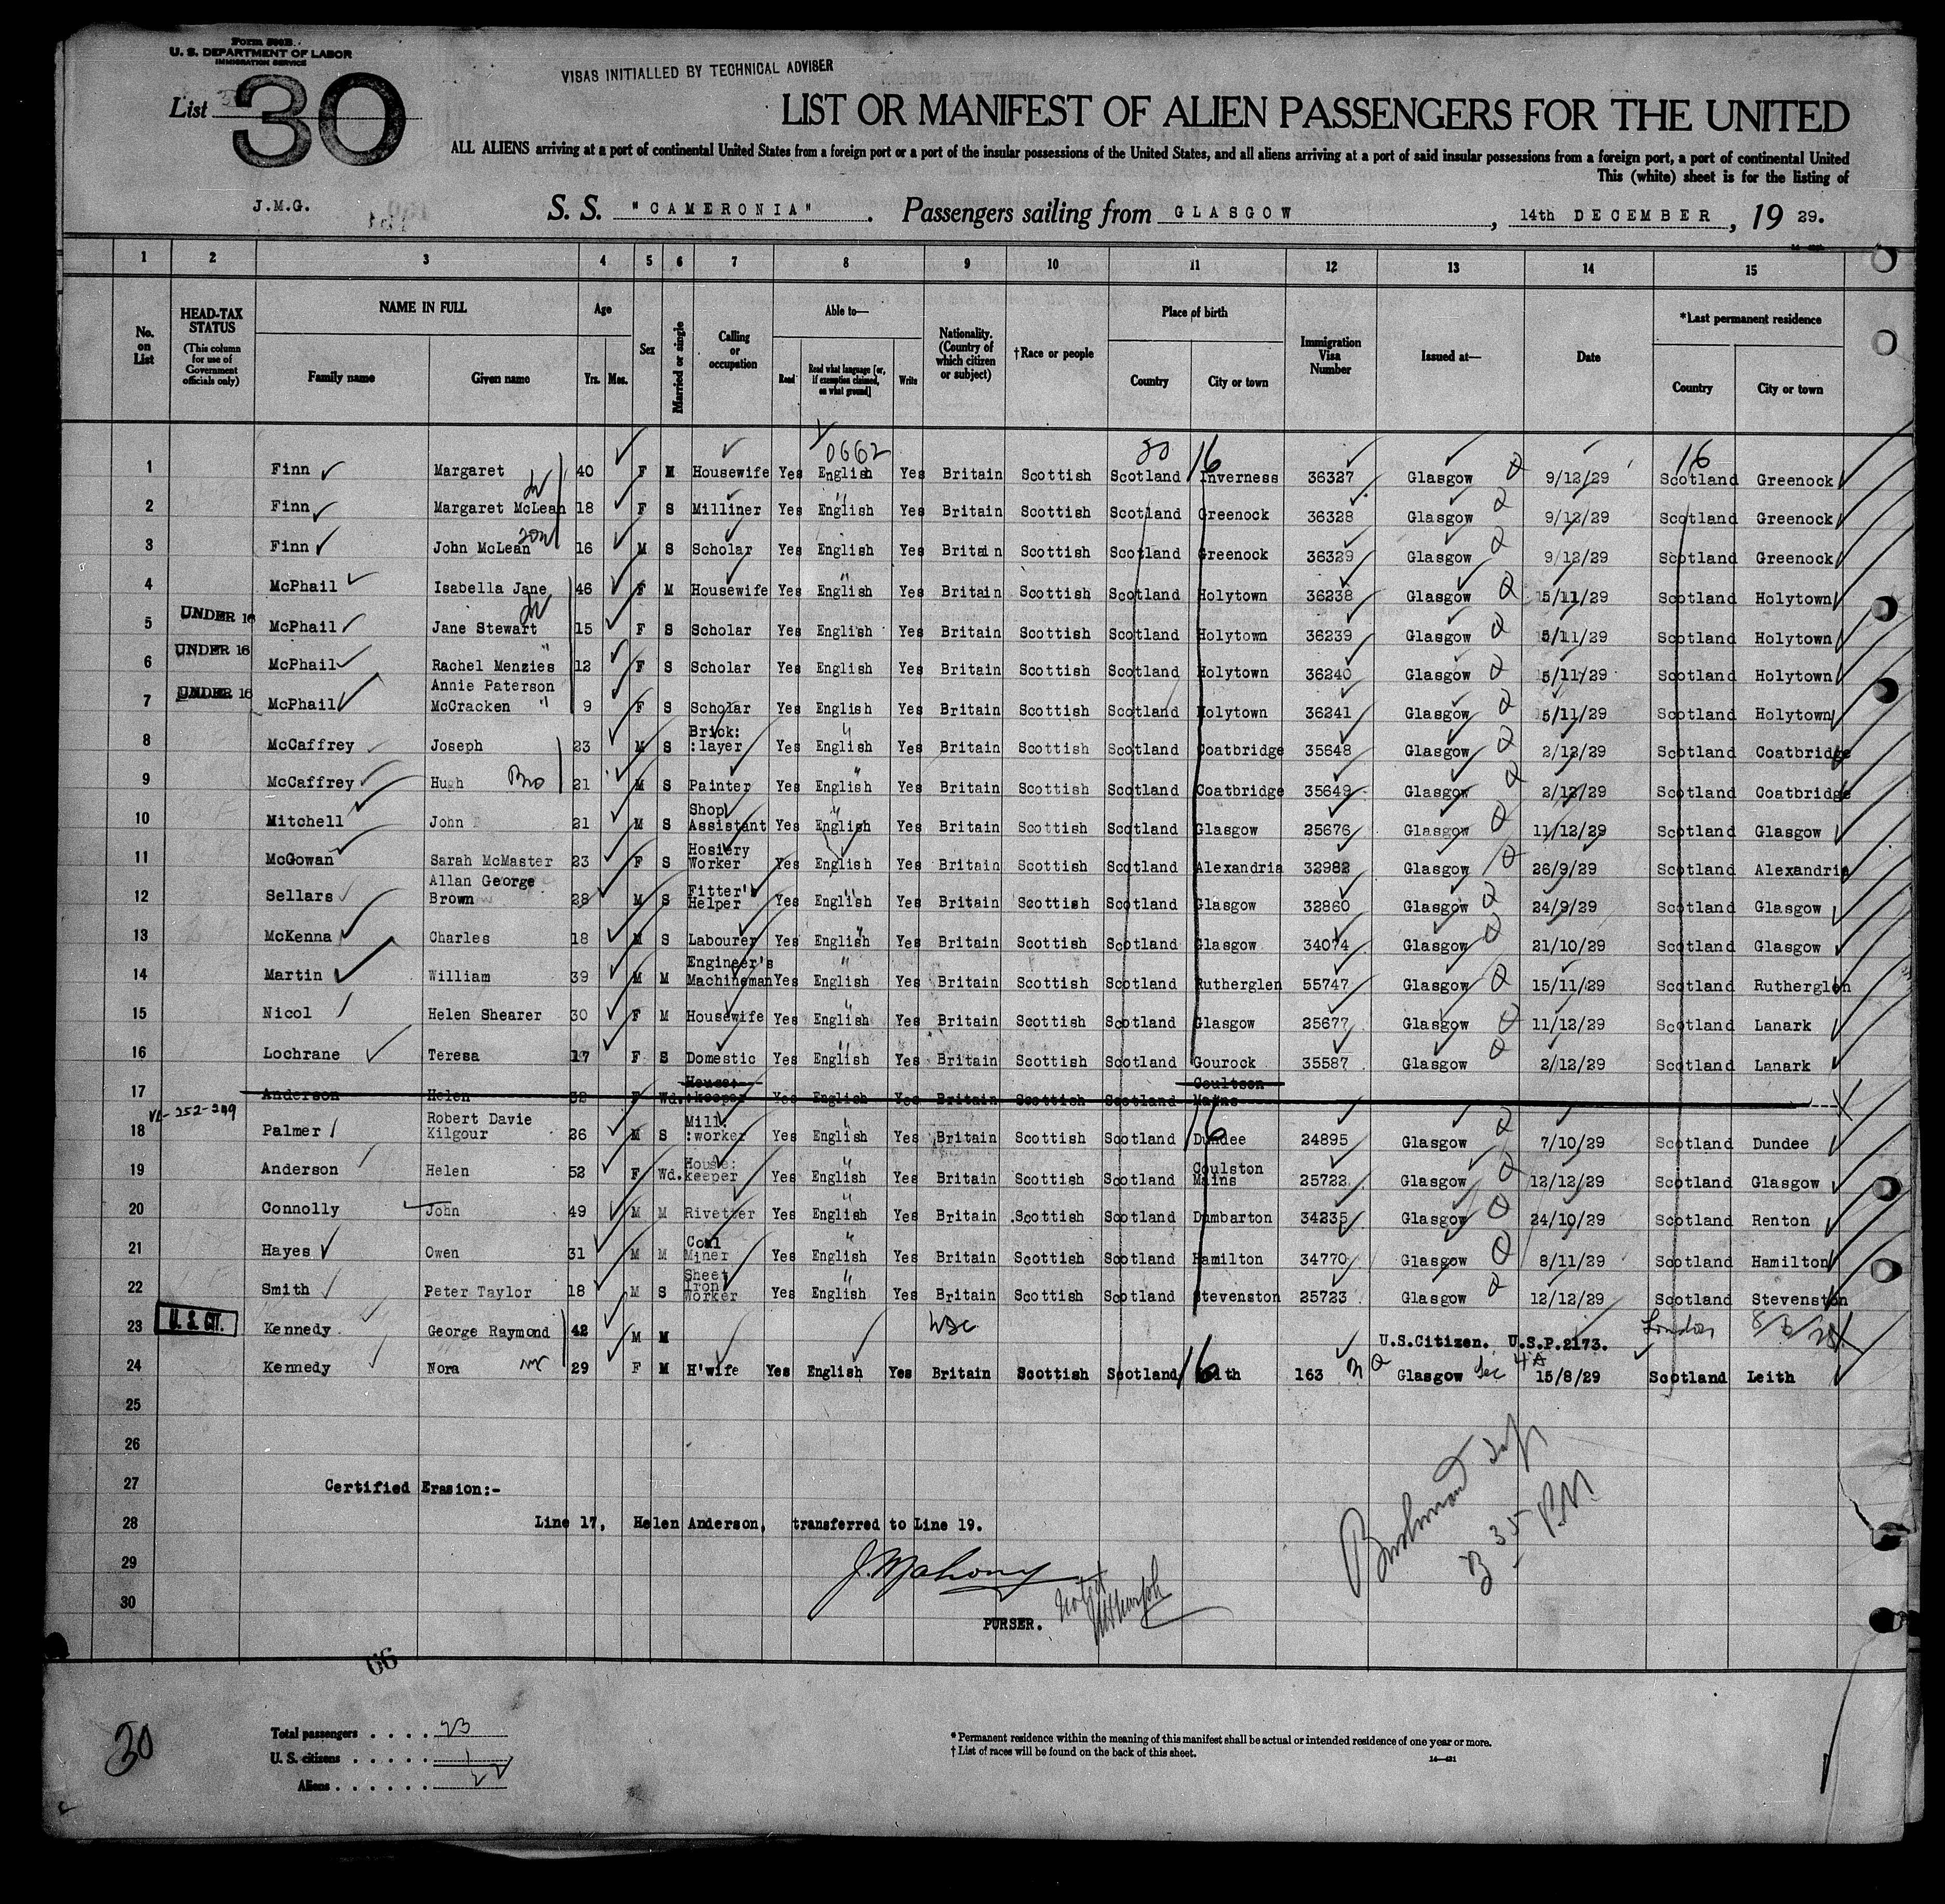 Form 500B
U. S. DEPARTMENT OF LABOR
IMMIGRATION SERVICE
VISAS INITIALLED BY TECHNICAL ADVISER
List 30
LIST OR MANIFEST OF ALIEN PASSENGERS FOR THE UNITED
ALL ALIENS arriving at a port of continental United States from a foreign port or a port of the insular possessions of the United States, and all aliens arriving at a port of said insular possessions from a foreign port, a port of continental United
This (white) sheet is for the listing of
J.M.G.
S. S. "CAMERONIA". Passengers sailing from GLASGOW, 14th DECEMBER, 19 29.
1 2 3 4 5 6 7 8 9 10 11 12 13 14 15
No. on List
HEAD-TAX STATUS (This column for use of Government officials only)
NAME IN FULL Family name Given name
Age Yrs. Mos.
Sex
Married or single
Calling or occupation
Able to— Read Read what language [or, if exemption claimed, on what ground] Write
Nationality. (Country of which citizen or subject)
†Race or people
Place of birth Country City or town
Immigration Visa Number
Issued at—
Date
*Last permanent residence Country City or town
0662 16 16
1 Finn Margaret 40 F M Housewife Yes English Yes Britain Scottish Scotland Inverness 36327 Glasgow 9/12/29 Scotland Greenock
2 Finn Margaret McLean 18 F S Milliner Yes English Yes Britain Scottish Scotland Greenock 36328 Glasgow 9/12/29 Scotland Greenock
3 Finn John McLean son 16 M S Scholar Yes English Yes Britain Scottish Scotland Greenock 36329 Glasgow 9/12/29 Scotland Greenock
4 McPhail Isabella Jane 46 F M Housewife Yes English Yes Britain Scottish Scotland Holytown 36238 Glasgow 15/11/29 Scotland Holytown
5 UNDER 16 McPhail Jane Stewart 15 F S Scholar Yes English Yes Britain Scottish Scotland Holytown 36239 Glasgow 5/11/29 Scotland Holytown
6 UNDER 16 McPhail Rachel Menzies " 12 F S Scholar Yes English Yes Britain Scottish Scotland Holytown 36240 Glasgow 15/11/29 Scotland Holytown
7 UNDER 16 McPhail Annie Paterson McCracken " 9 F S Scholar Yes English Yes Britain Scottish Scotland Holytown 36241 Glasgow 15/11/29 Scotland Holytown
8 McCaffrey Joseph 23 M S Brick: :layer Yes English Yes Britain Scottish Scotland Coatbridge 35648 Glasgow 2/12/29 Scotland Coatbridge
9 McCaffrey Hugh Bro 21 M S Painter Yes English Yes Britain Scottish Scotland Coatbridge 35649 Glasgow 2/12/29 Scotland Coatbridge
10 Mitchell John 21 M S Shop Assistant Yes English Yes Britain Scottish Scotland Glasgow 25676 Glasgow 11/12/29 Scotland Glasgow
11 McGowan Sarah McMaster 23 F S Hosiery Worker Yes English Yes Britain Scottish Scotland Alexandria 32982 Glasgow 26/9/29 Scotland Alexandria
12 Sellars Allan George Brown 28 M S Fitter's Helper Yes English Yes Britain Scottish Scotland Glasgow 32860 Glasgow 24/9/29 Scotland Glasgow
13 McKenna Charles 18 M S Labourer Yes English Yes Britain Scottish Scotland Glasgow 34074 Glasgow 21/10/29 Scotland Glasgow
14 Martin William 39 M M Engineer's Machineman Yes English Yes Britain Scottish Scotland Rutherglen 55747 Glasgow 15/11/29 Scotland Rutherglen
15 Nicol Helen Shearer 30 F M Housewife Yes English Yes Britain Scottish Scotland Glasgow 25677 Glasgow 11/12/29 Scotland Lanark
16 Lochrane Teresa 17 F S Domestic Yes English Yes Britain Scottish Scotland Gourock 35587 Glasgow 2/12/29 Scotland Lanark
17 Anderson Helen 52 F Wd. House: :keeper Yes English Yes Britain Scottish Scotland Coultson Mains
18 Palmer Robert Davie Kilgour 26 M S Mill: :worker Yes English Yes Britain Scottish Scotland 16 Dundee 24895 Glasgow 7/10/29 Scotland Dundee
19 Anderson Helen 52 F Wd. House: keeper Yes English Yes Britain Scottish Scotland Coulston Mains 25722 Glasgow 12/12/29 Scotland Glasgow
20 Connolly John 49 M M Rivetter Yes English Yes Britain Scottish Scotland Dumbarton 34235 Glasgow 24/10/29 Scotland Renton
21 Hayes Owen 31 M M Coal Miner Yes English Yes Britain Scottish Scotland Hamilton 34770 Glasgow 8/11/29 Scotland Hamilton
22 Smith Peter Taylor 18 M S Sheet Iron Worker Yes English Yes Britain Scottish Scotland Stevenston 25723 Glasgow 12/12/29 Scotland Stevenston
23 U.S. CIT. Kennedy George Raymond 42 M M U.S.Citizen. U.S.P.2173. London
24 Kennedy Nora 29 F M H'wife Yes English Yes Britain Scottish Scotland 16 Leith 163 Glasgow Sec 4A 15/8/29 Scotland Leith
25
26
27 Certified Erasion:-
28 Line 17, Helen Anderson, transferred to Line 19.
29 J. Mahony
30 PURSER.
30
Total passengers 23
U. S. citizens 1
Aliens 22
* Permanent residence within the meaning of this manifest shall be actual or intended residence of one year or more.
† List of races will be found on the back of this sheet.
14—421